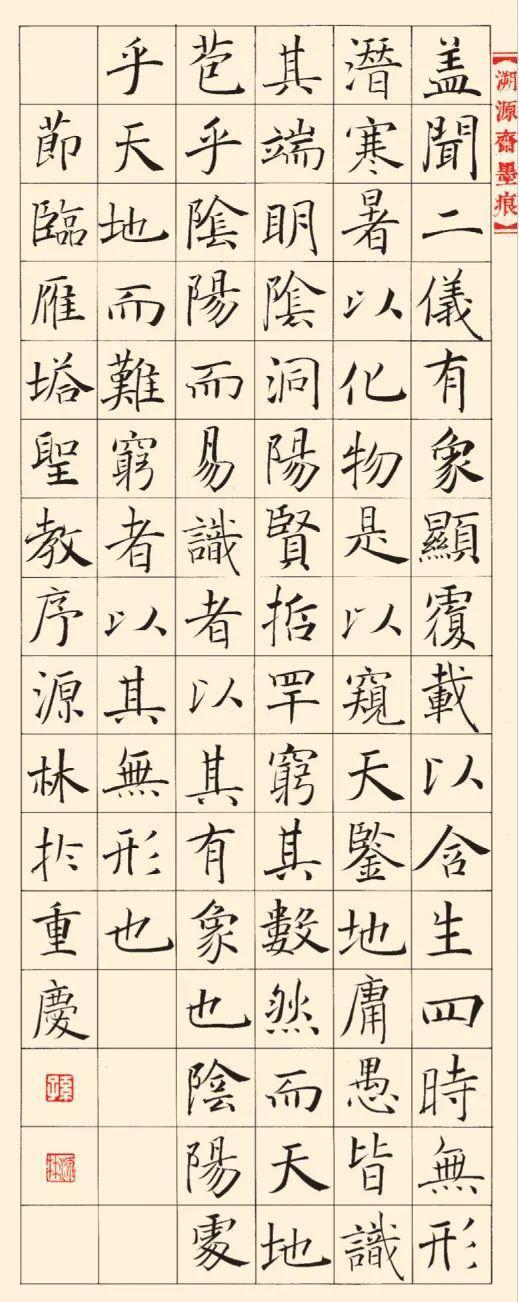 【溯源齋墨痕】
盖聞二儀有象顯覆載以含生四時無形
潛寒暑以化物是以窺天鑒地庸愚皆識
其端明陰洞陽賢哲罕窮其數然而天地
苞乎陰陽而易識者以其有象也陰陽處
乎天地而難窮者以其無形也
節臨雁塔聖教序源林於重慶